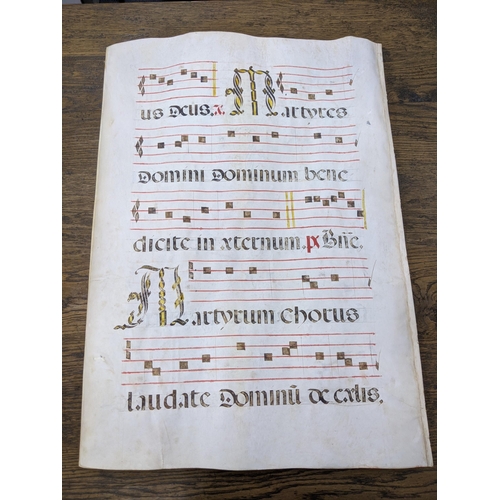 us Deus. x. Martyres
Domini Dominum bene
dicite in xternum. px Bñe.
Martyrum chorus
laudate Dominū de cxlis.